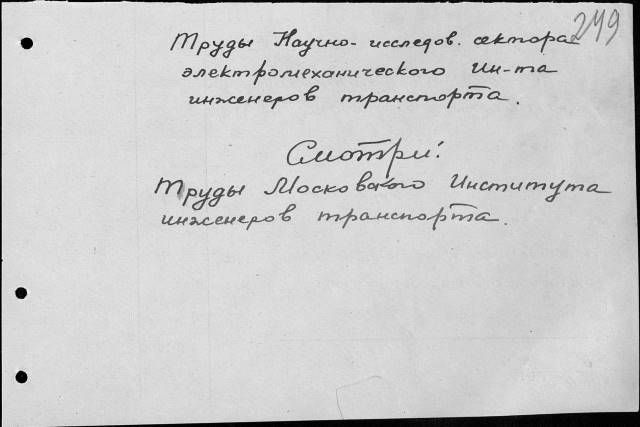 249
Труды Научно-исследов. сектора
электромеханического Ин-та
инженеров транспорта.
Смотри:
Труды Московского Института
инженеров транспорта.